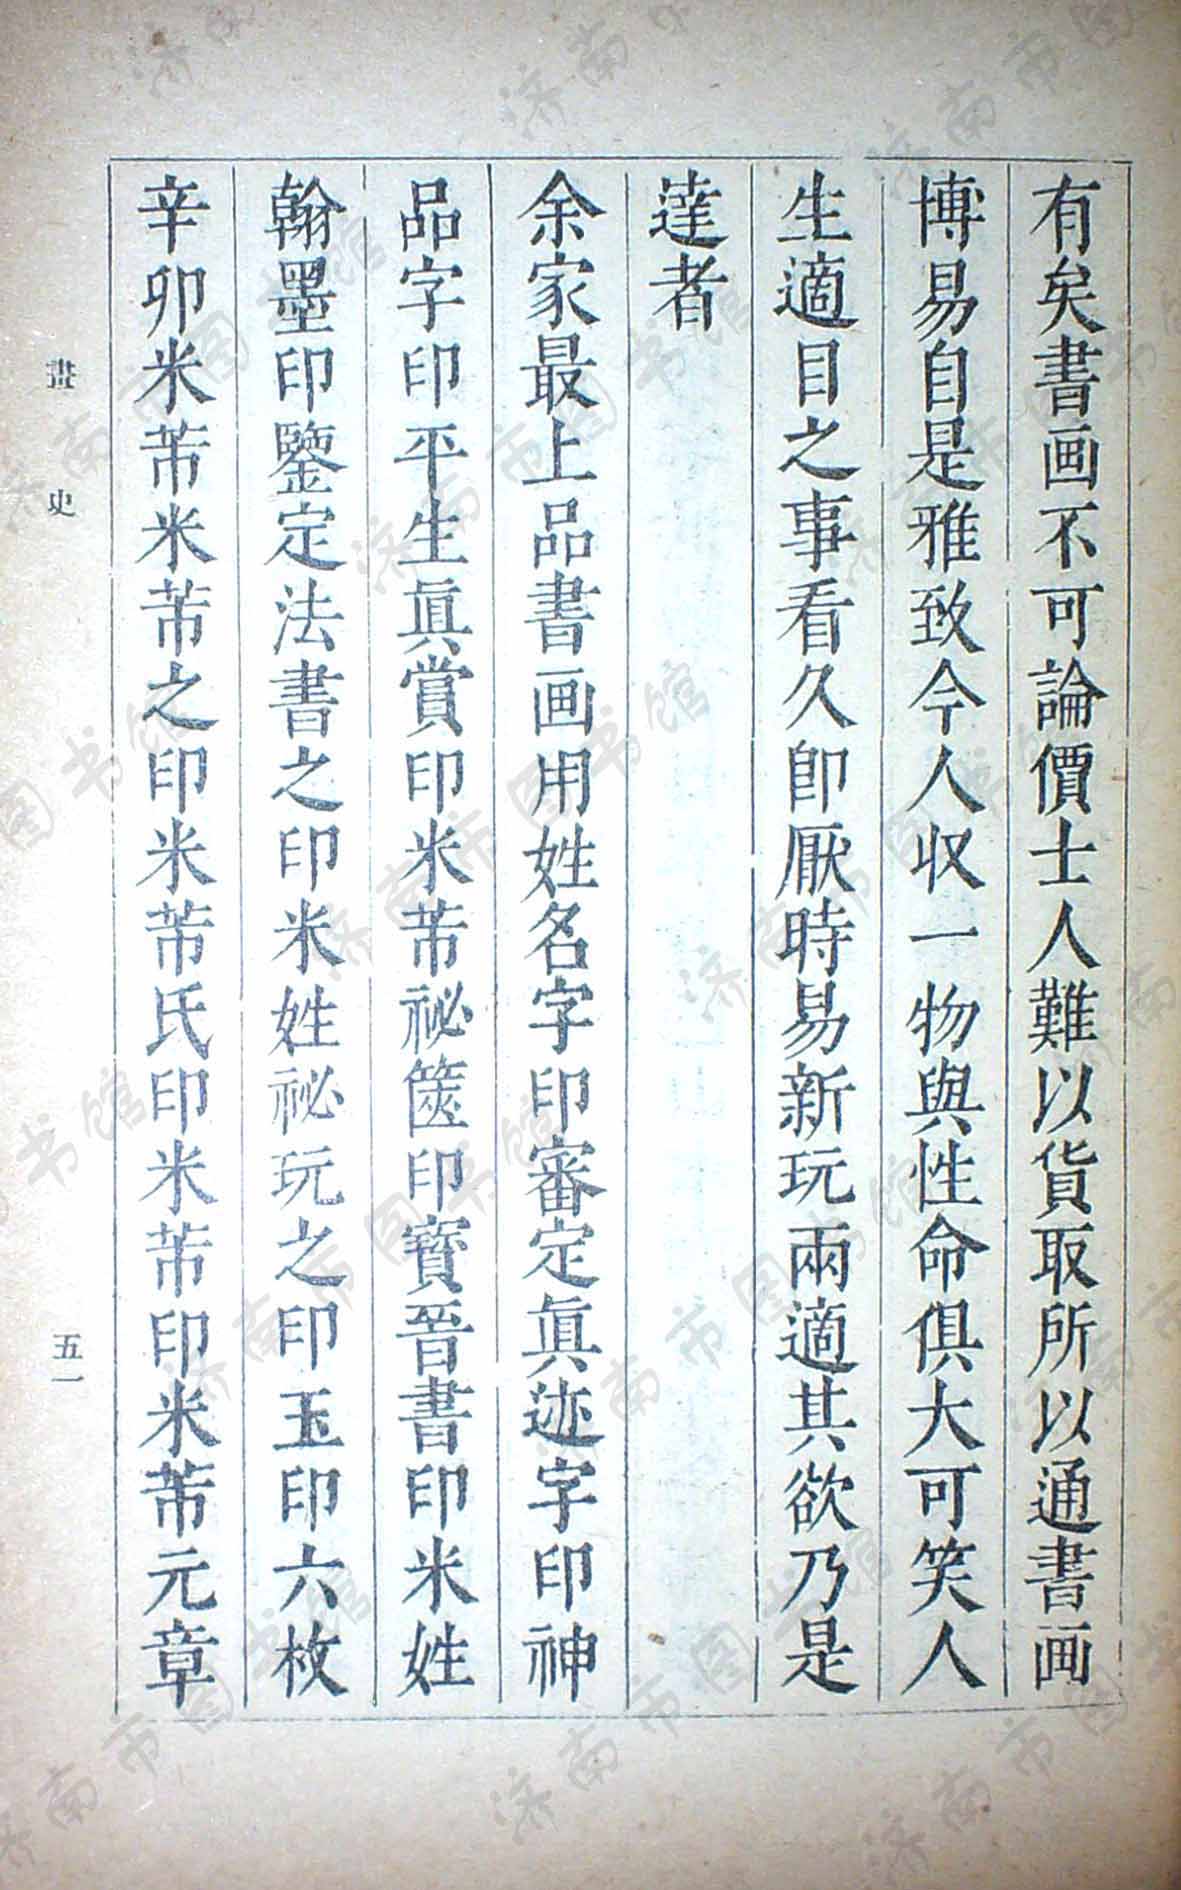 有矣書画不可論價士人難以貨取所以通書画
博易自是雅致今人収一物與性命俱大可笑人
生適目之事看久卽厭時易新玩兩適其欲乃是
達者
余家最上品書画用姓名字印審定眞迹字印神
品字印平生眞賞印米芾祕篋印寶晉書印米姓
翰墨印鑒定法書之印米姓祕玩之印玉印六枚
辛卯米芾米芾之印米芾氏印米芾印米芾元章
畫史
五一
济南市图书馆